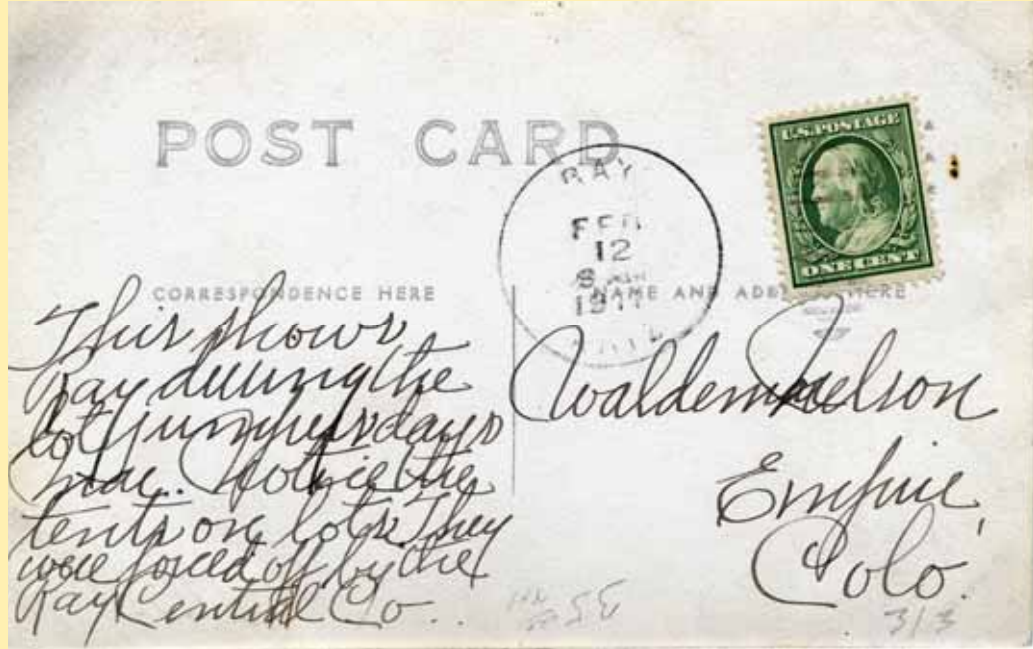 POST CARD
U.S. POSTAGE
ONE CENT
RAY
FEB
12
8
1911
ARIZ
CORRESPONDENCE HERE
NAME AND ADDRESS HERE
This shows
Ray during the
lot jumpers days
Notice the
tents on lots. They
were forced off by the
Ray Central Co..
Waldemar Nelson
Empire,
Colo.
55
313